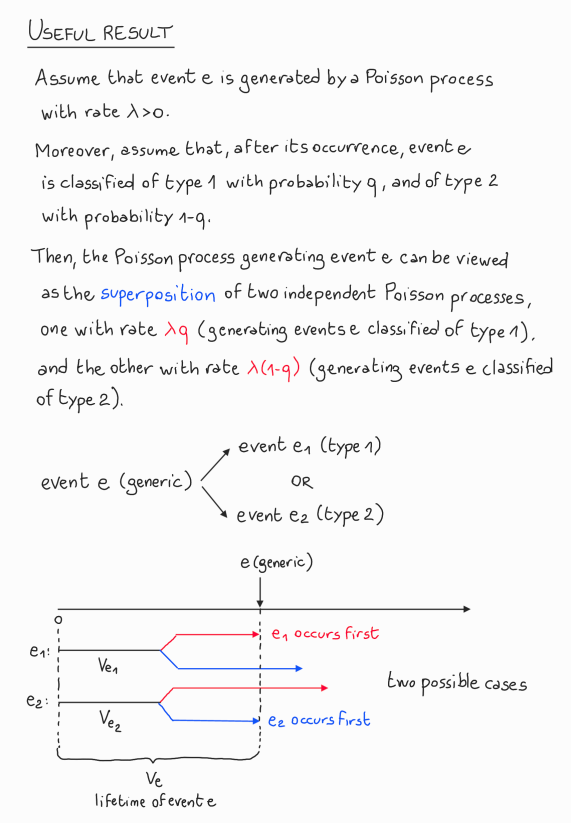 USEFUL RESULT
Assume that event e is generated by a Poisson process
with rate λ>0.
Moreover, assume that, after its occurrence, event e
is classified of type 1 with probability q, and of type 2
with probability 1-q.
Then, the Poisson process generating event e can be viewed
as the superposition of two independent Poisson processes,
one with rate λq (generating events e classified of type 1),
and the other with rate λ(1-q) (generating events e classified
of type 2).
event e₁ (type 1)
event e (generic)
OR
event e₂ (type 2)
e (generic)
0
e₁ occurs first
e₁:
Ve₁
two possible cases
e₂:
Ve₂
e₂ occurs first
Ve
lifetime of event e